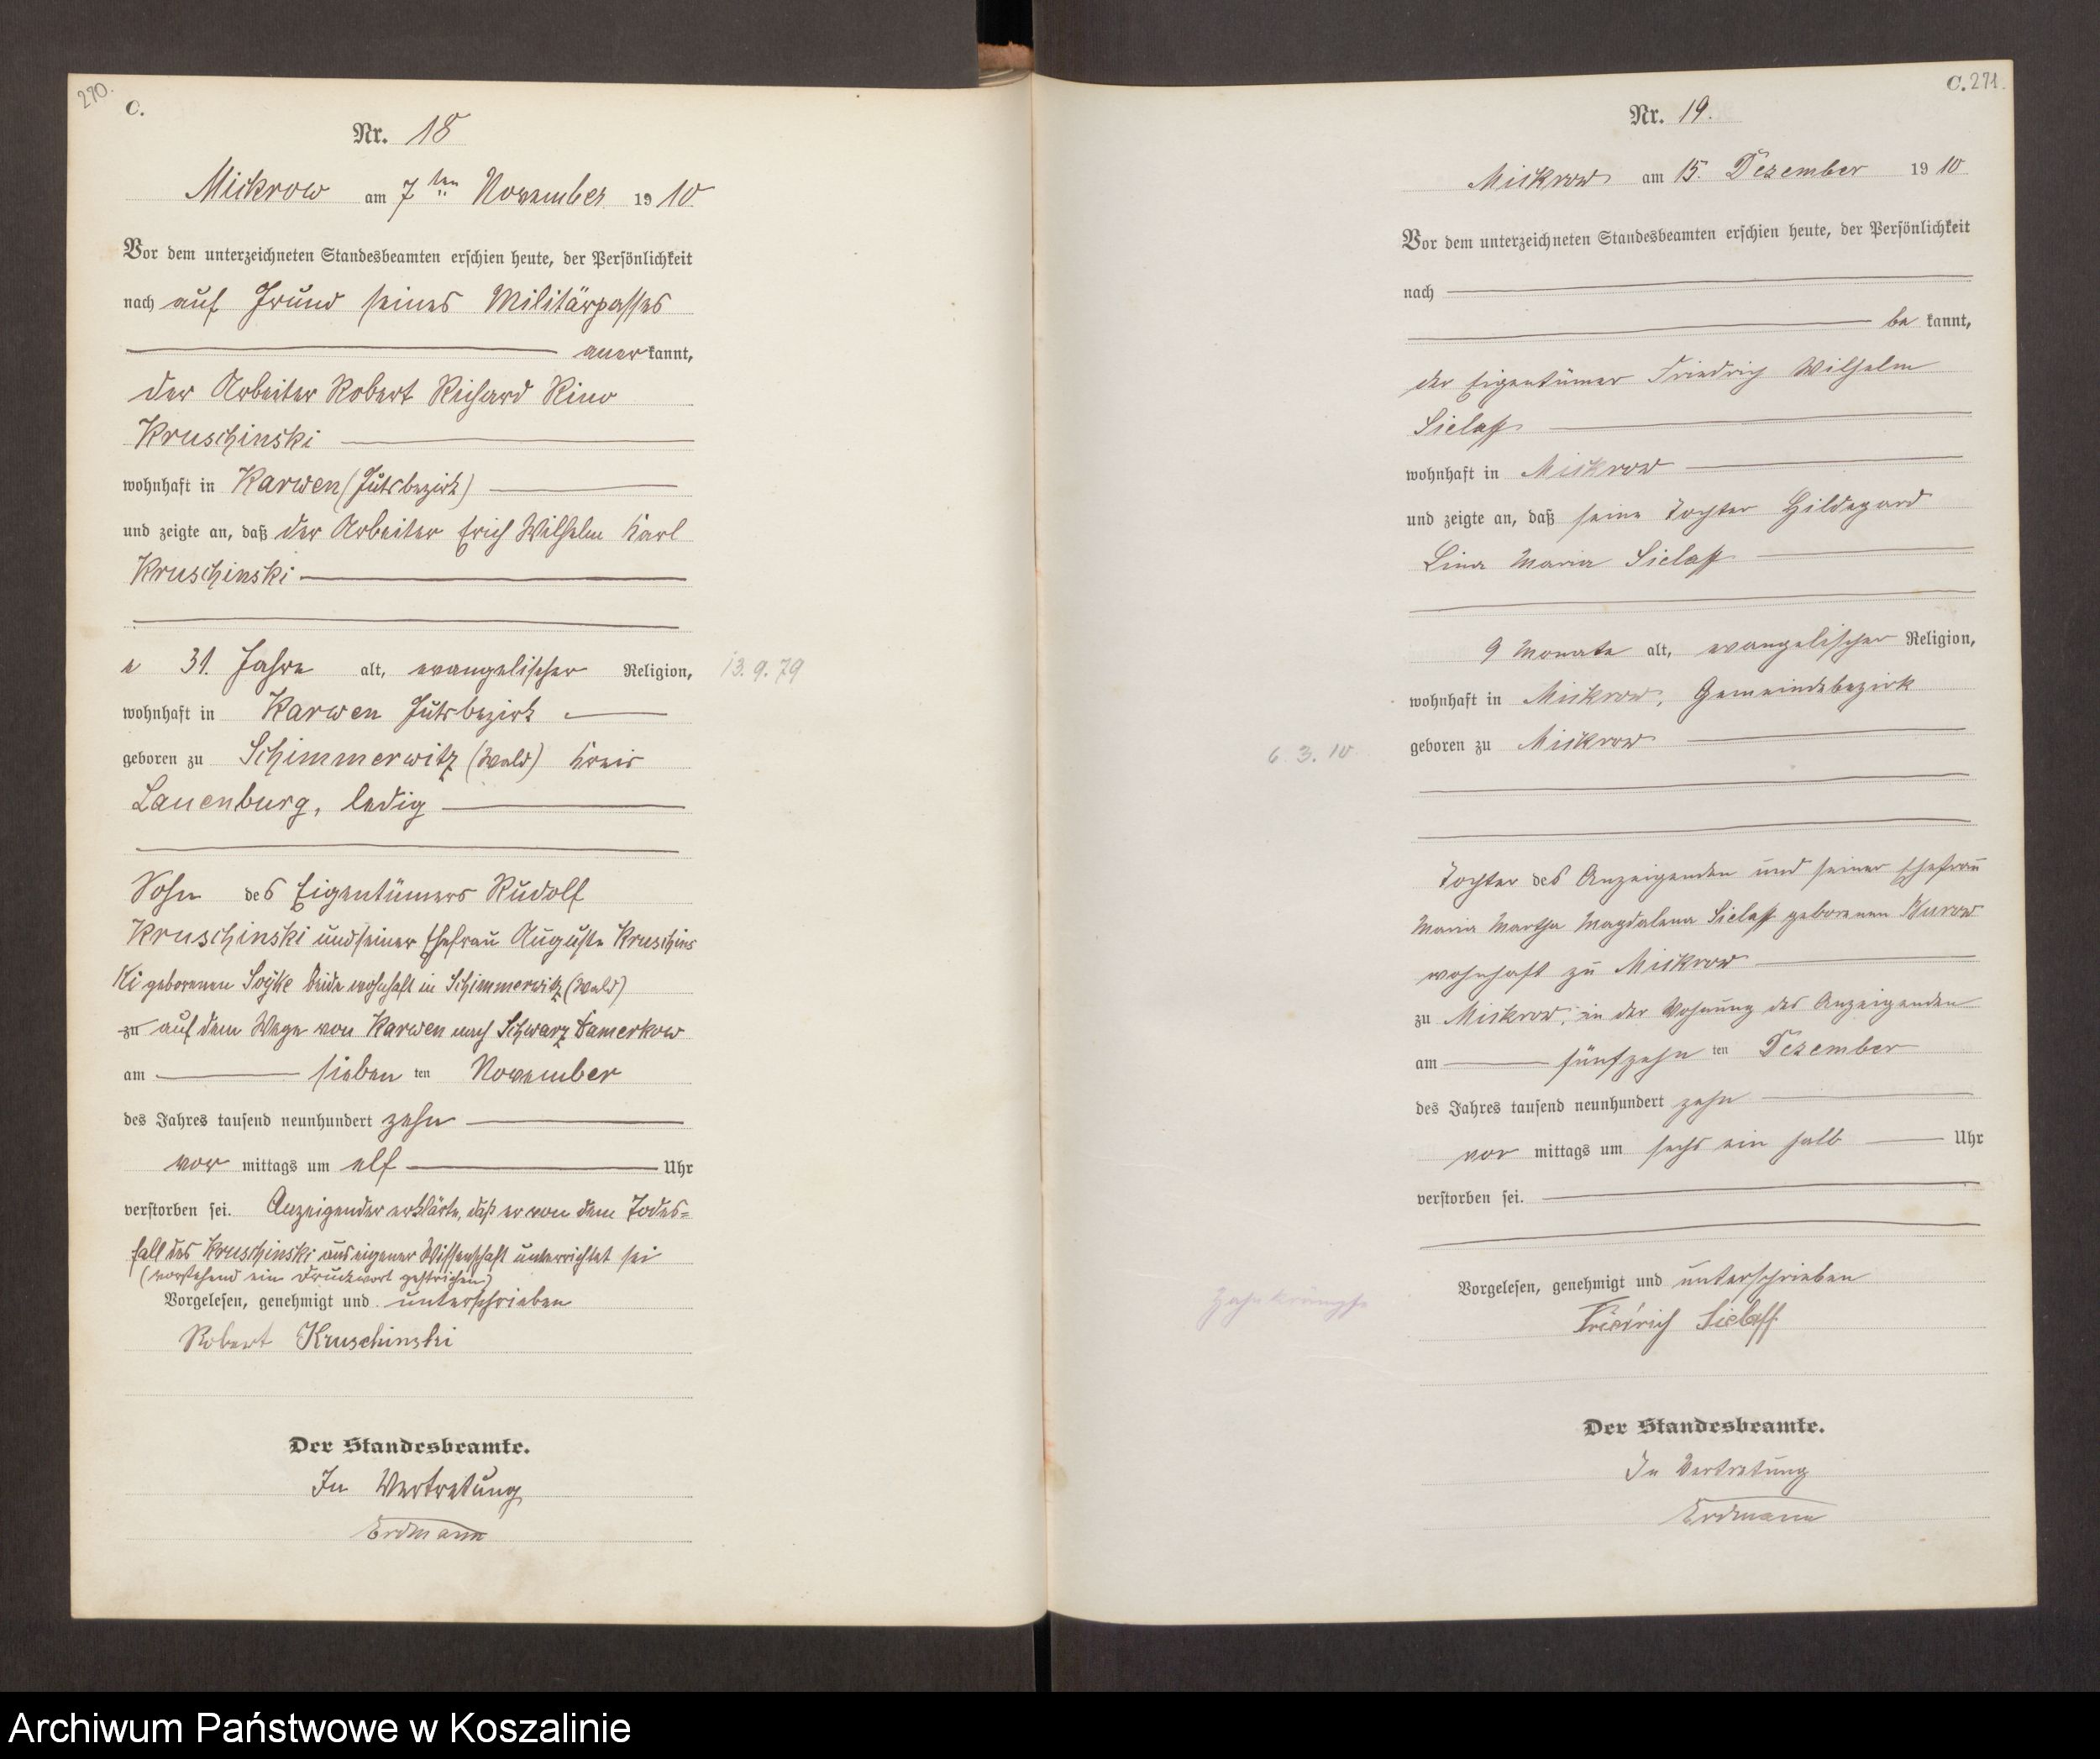 270.
C.
Nr. 18
Mickrow am 7ten November 1910.
Vor dem unterzeichneten Standesbeamten erschien heute, der Persönlichkeit
nach auf Grund seines Militärpasses
anerkannt,
der Arbeiter Robert Richard Rino
Kruschinski
wohnhaft in Karwen (Gutsbezirk)
und zeigte an, daß der Arbeiter Erich Wilhelm Karl
Kruschinski
31. Jahre alt, evangelischer Religion, 13.9.79
wohnhaft in Karwen Gutsbezirk
geboren zu Schimmerwitz (Wald) Kreis
Lauenburg, ledig
Sohn des Eigentümers Rudolf
Kruschinski und seiner Ehefrau Auguste Kruschins
ki geborenen beide wohnhaft in Schimmerwitz (Wald)
zu auf dem Wege von Karwen nach Schwarz Damerkow
am sieben ten November
des Jahres tausend neunhundert zehn
vor mittags um elf Uhr
verstorben sei. Anzeigender erklärte, daß er von dem Todes=
fall des Kruschinski aus eigener Wissenschaft unterrichtet sei
(vorstehend ein Druckwort gestrichen)
Vorgelesen, genehmigt und unterschrieben
Robert Kruschinski
Der Standesbeamte.
In Vertretung
Erdmann
C. 271.
Nr. 19.
Mickrow am 15. Dezember 1910
Vor dem unterzeichneten Standesbeamten erschien heute, der Persönlichkeit
nach
be kannt,
der Eigentümer Friedrich Wilhelm
Sielaff
wohnhaft in Mickrow
und zeigte an, daß seine Tochter Hildegard
Lina Maria Sielaff
9 Monate alt, evangelischer Religion,
wohnhaft in Mickrow, Gemeindebezirk
6.3.10 geboren zu Mickrow
Tochter des Anzeigenden und seiner Ehefrau
Maria Martha Magdalena Sielaff geborenen
wohnhaft zu Mickrow
zu Mickrow, in der Wohnung des Anzeigenden
am fünfzehn ten Dezember
des Jahres tausend neunhundert zehn
vor mittags um sechs ein halb Uhr
verstorben sei.
Vorgelesen, genehmigt und unterschrieben
Zahnkrämpfe
Friedrich Sielaff.
Der Standesbeamte.
In Vertretung
Erdmann
Archiwum Państwowe w Koszalinie